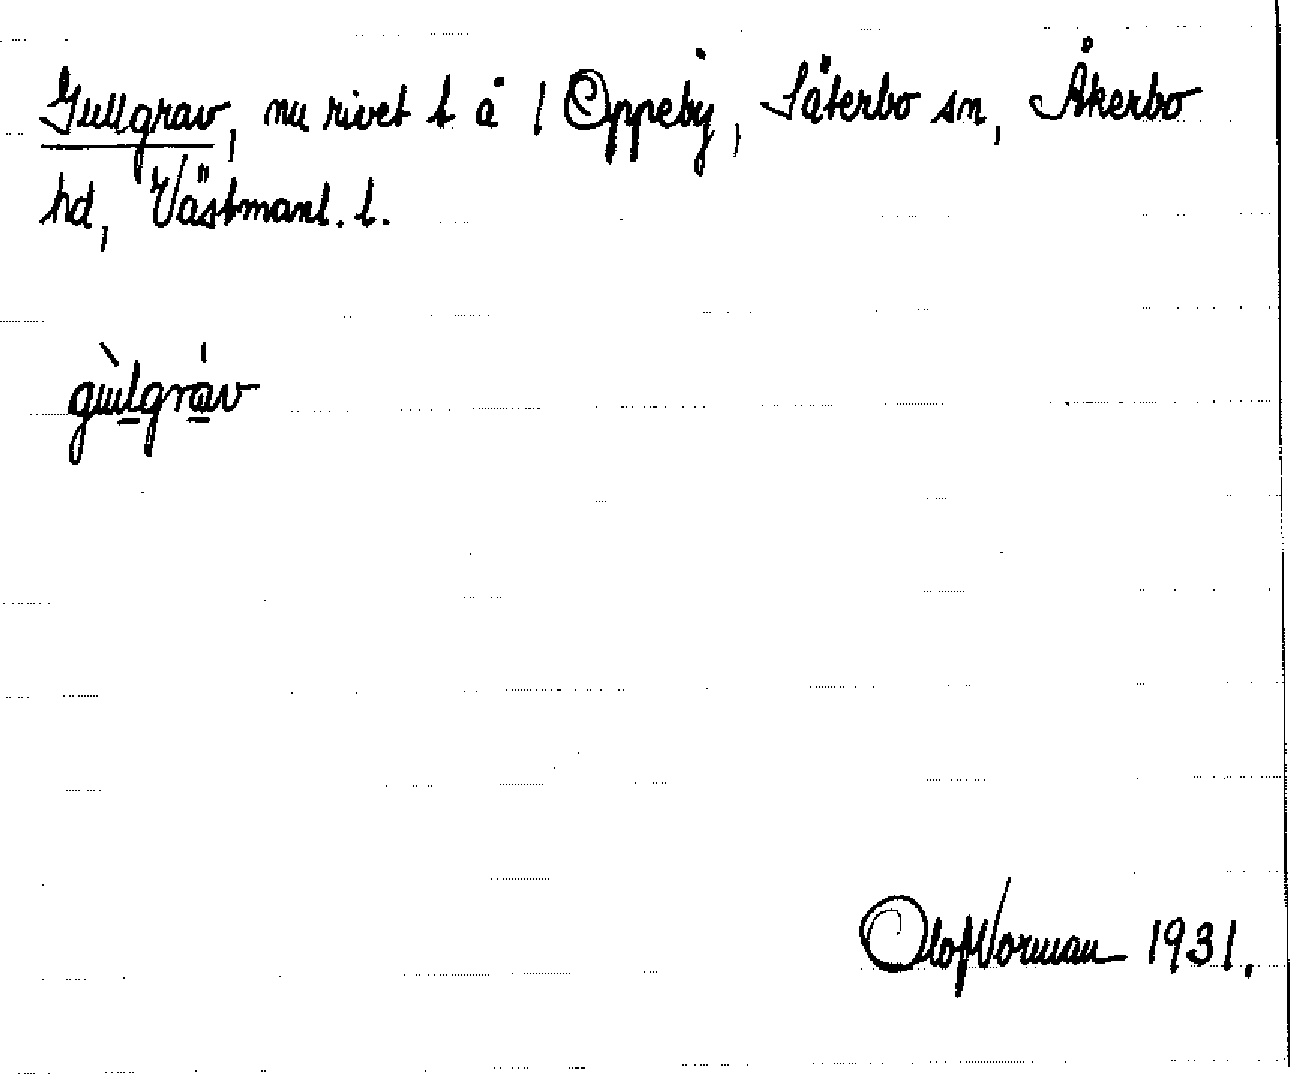 Gullgrav, nu rivet t å 1 Oppeby, Säterbo sn, Åkerbo
hd, Västmanl. l.
gùlgràv
Olof Norman 1931.